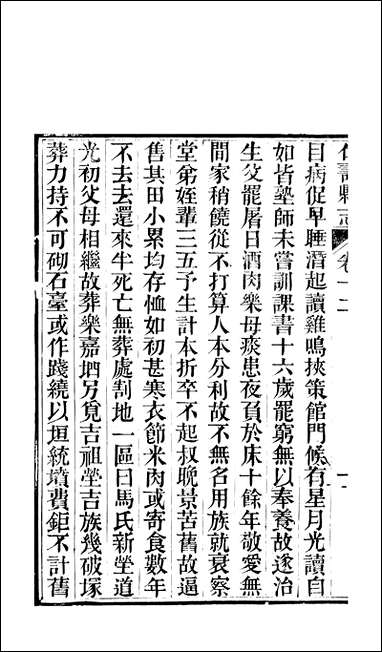 仁壽縣志 卷一二
目病促早睡潛起讀雞鳴挾策館門候有星月光讀自
如皆塾師未嘗訓課書十六歲罷窮無以奉養故遂治
生父罷屠日酒肉樂母痰患夜負於床十餘年敬愛無
間家稍饒從不打算人本分利故不無名用族就衰察
堂弟姪輩三五予生計本折卒不起叔晚景苦舊故逼
售其田小累均存恤如初甚寒衣節米肉或寄食數年
不去去還來半死亡無葬處割地一區曰馬氏新塋道
光初父母相繼故葬樂嘉埂另覓吉祖塋吉族幾破塚
葬力持不可砌石臺或作踐繞以垣統墳費鉅不計舊